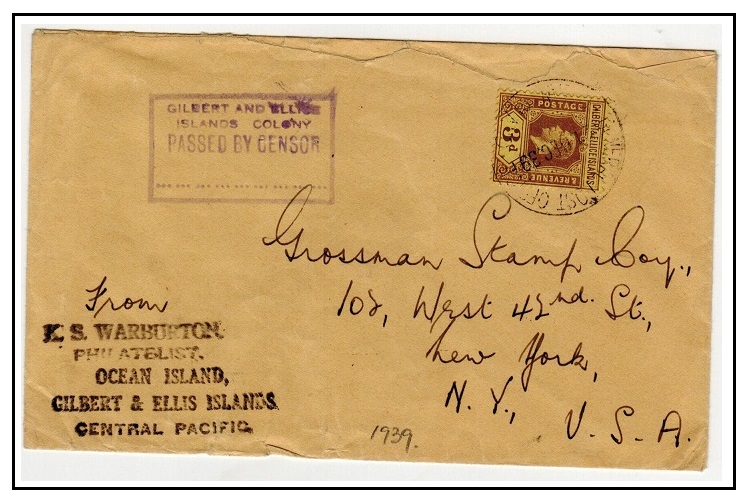 GILBERT AND ELLICE
ISLANDS COLONY
PASSED BY CENSOR
POSTAGE
& REVENUE
3d
GILBERT & ELLICE ISLANDS
POST
39
Grossman Stamp Coy.,
102, West 42nd. St.,
New York,
N. Y.,
U. S. A.
From
K. S. WARBURTON.
PHILATELIST.
OCEAN ISLAND,
GILBERT & ELLIS ISLANDS,
CENTRAL PACIFIC.
1939.